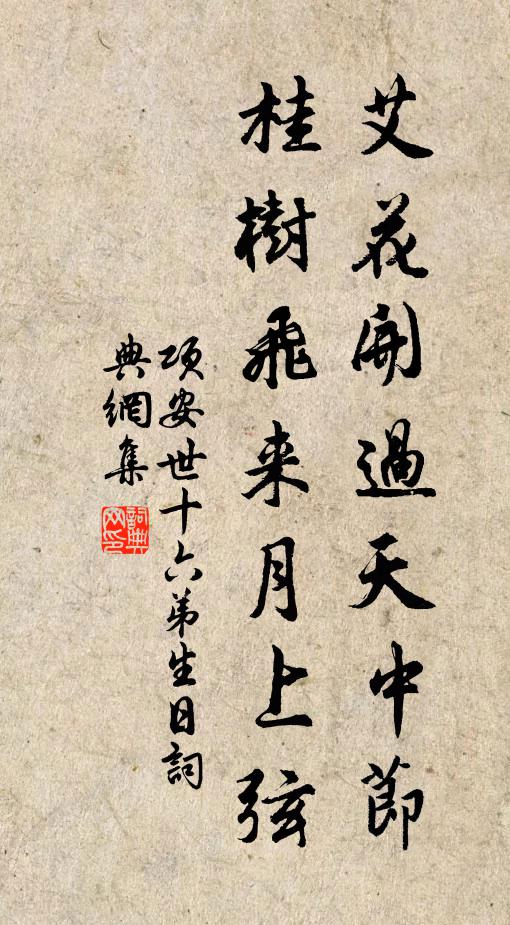 艾花開過天中節
桂樹飛来月上弦
項安世十六弟生日詞
典網集
詞典网印